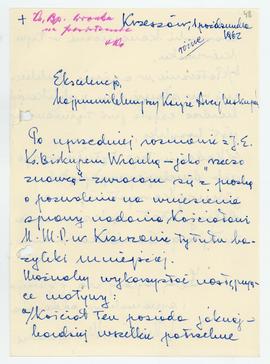 + Ks. Bp. Wronka
Krzeszów, 1 października
1962
48
Ekscelencjo,
Najprzewielebniejszy Księże Arcybiskupie,
Po uprzedniej rozmowie z J.E.
Ks. Biskupem Wronką – jako "rzeczo
znawcą" – zwracam się z prośbą
o pozwolenie na wniesienie
sprawy nadania Kościołowi
N.M.P. w Krzeszowie tytułu ba-
zyliki mniejszej.
Możnaby wykorzystać następują-
ce motywy:
a/ Kościół ten posiada jaknaj-
bardziej wszelkie potrzebne